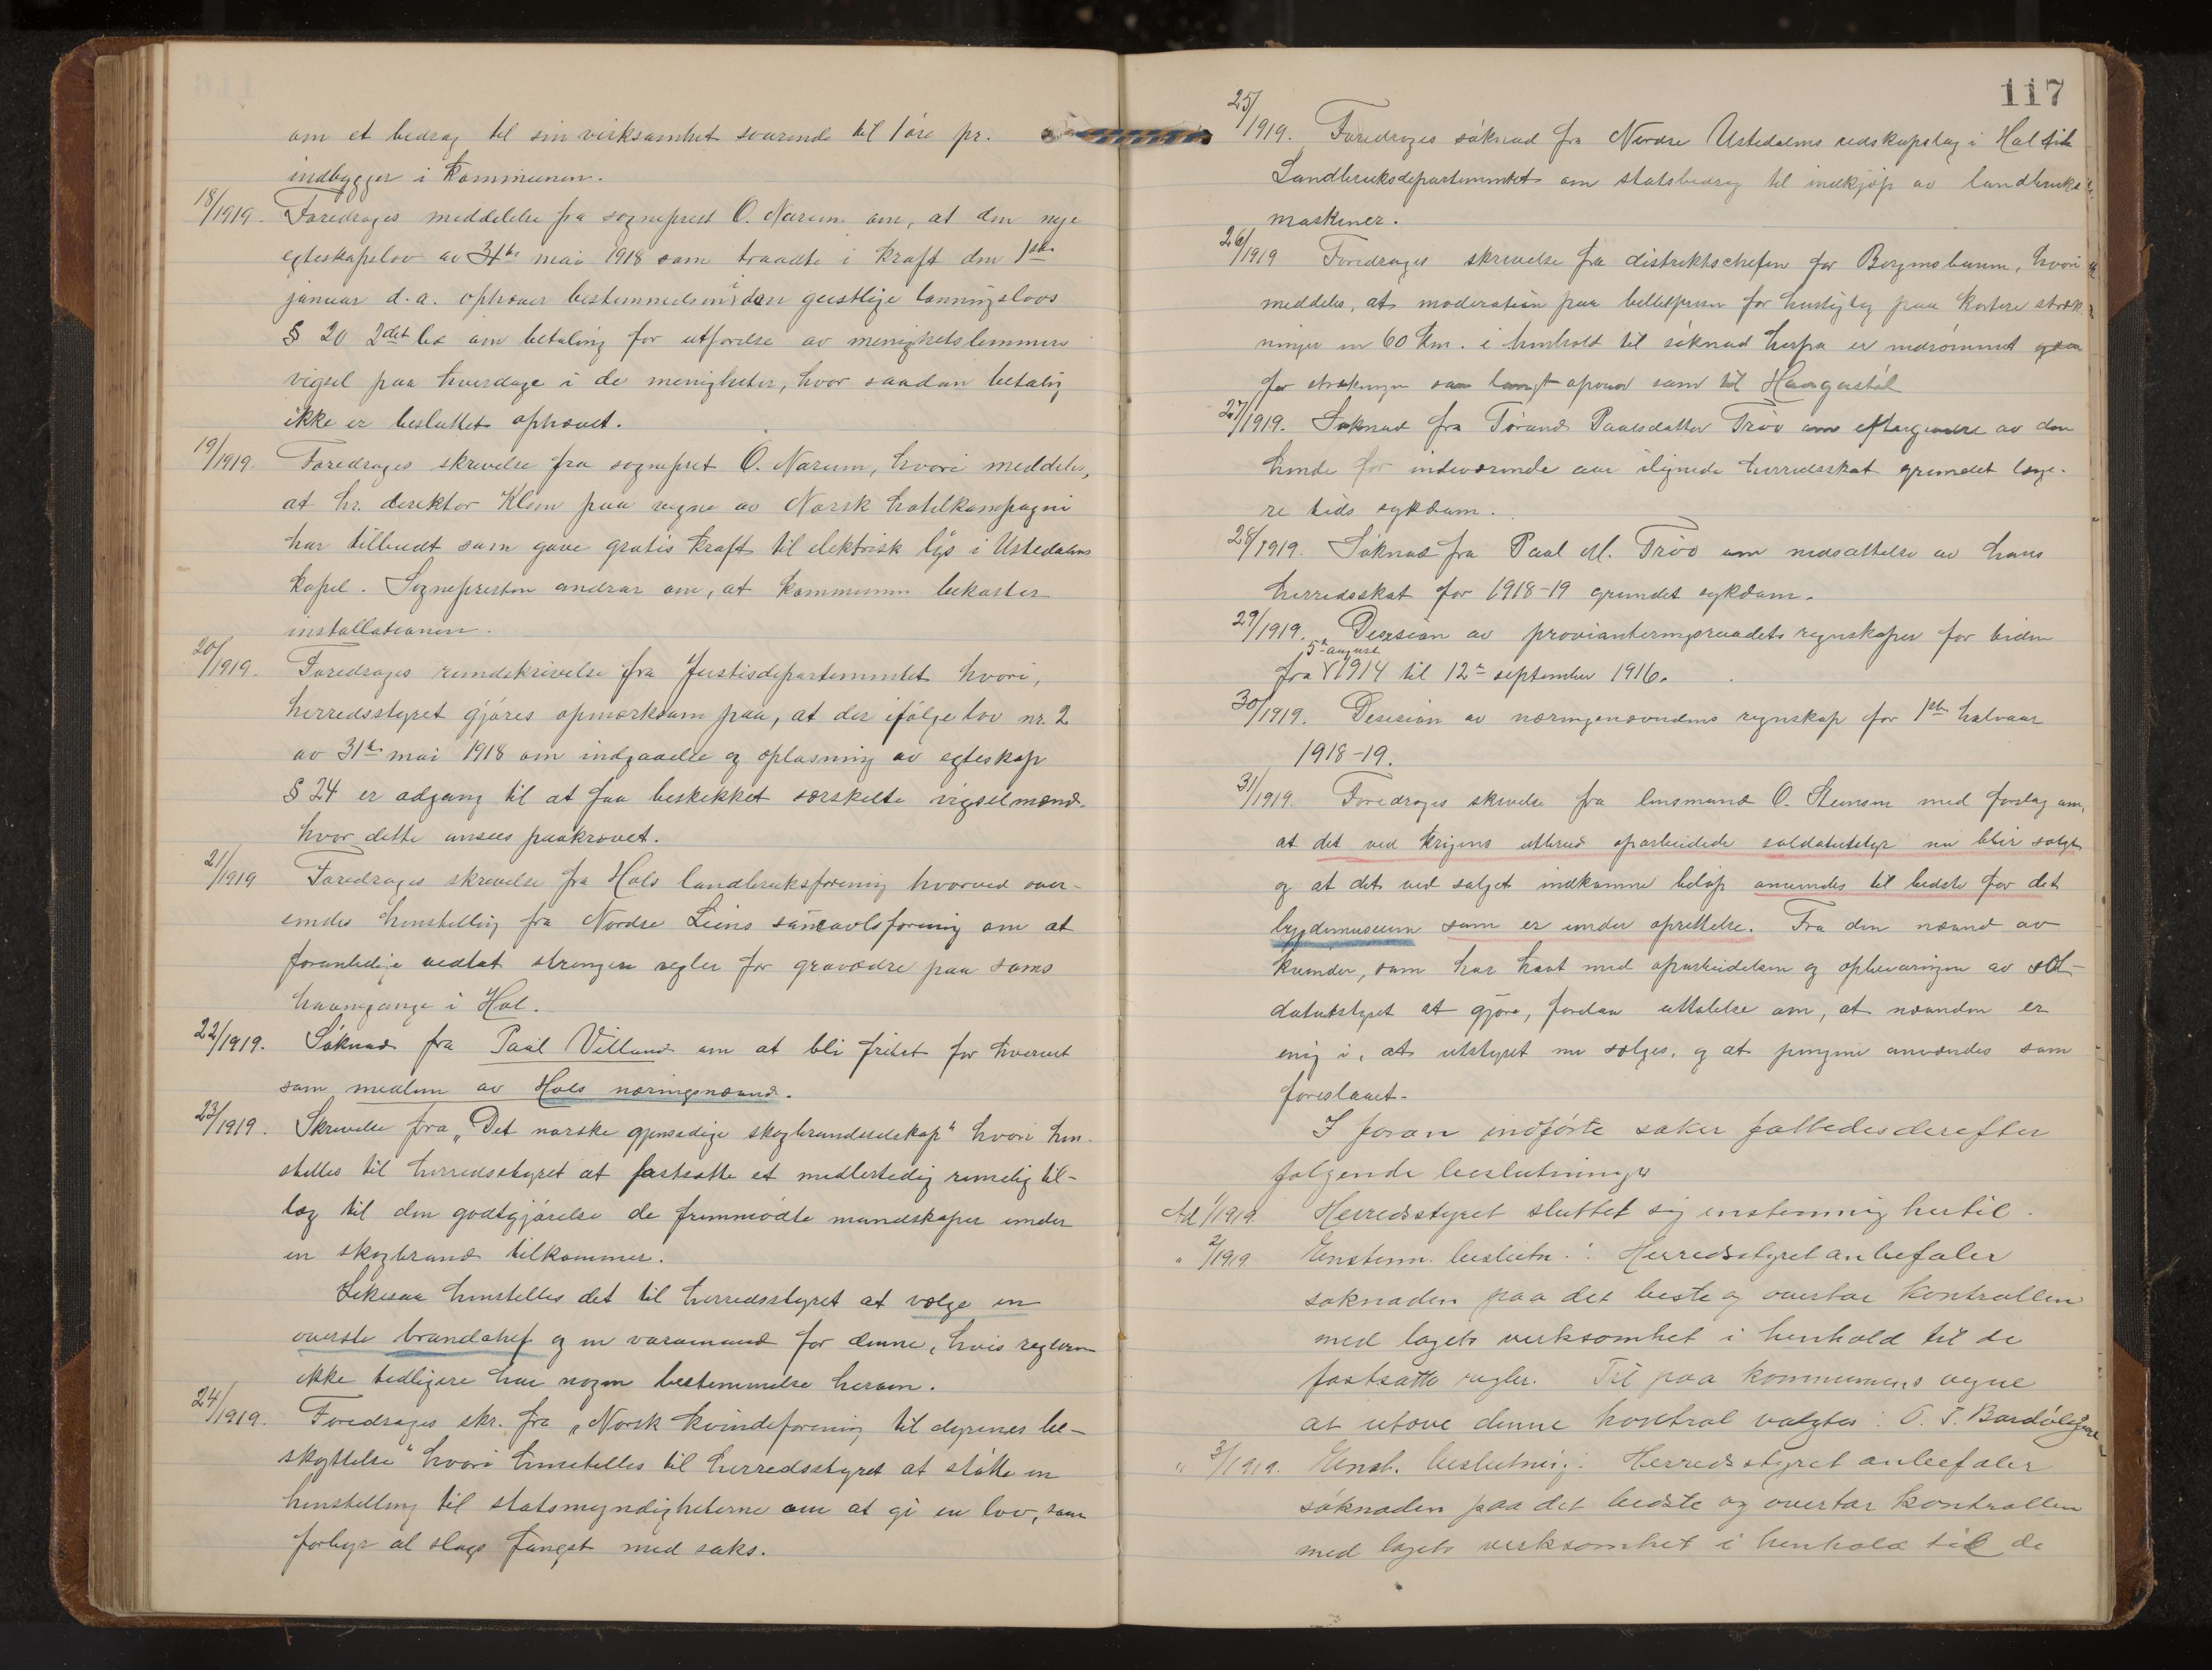 om et bedrag til sin virksomhet svarende til 1 øre pr.
indbygger i kommunen.
18/1919. Foredrages meddelelse fra sogneprest O. Narum om, at den nye
egteskapslov av 31te mai 1918 som traadte i kraft den 1ste
januar d.a. ophæver bestemmelsen i den geistlige lønningslovs
§ 20 2det led om betaling for utførelse av menighetslemmers
vigsel paa hverdage i de menigheter, hvor saadan betaling
ikke er besluttet ophævet.
19/1919. Foredrages skrivelse fra sogneprest O. Narum, hvori meddeles,
at hr. direktør Klem paa vegne av Norsk hotelkompagni
har tilbudt som gave gratis kraft til elektrisk lys i Ustedalens
kapel. Sognepresten andrar om, at kommunen bekoster
installationen.
20/1919. Foredrages rundskrivelse fra Justisdepartementet hvori,
herredsstyret gjøres opmerksom paa, at der ifølge lov nr. 2
av 31te mai 1918 om indgaaelse og opløsning av egteskap
§ 24 er adgang til at faa beskikket særskilte vigselmænd.
hvor dette ansees paakrævet.
21/1919 Foredrages skrivelse fra Hols landbruksforening hvorved over-
sendes henstilling fra Nordre Liens saueavlsforening om at
foranledige vedtat strengere regler for gravædre paa sams
havnegange i Hol.
22/1919. Søknad fra Paul Villand om at bli fritat for hvervet
som medlem av Hols næringsnævnd.
23/1919. Skrivelse fra "Det norske gjensidige skogbrandselskap" hvori hen-
stilles til herredsstyret at fastsætte et midlertidig rimelig til-
læg til den godtgjørelse de fremmødte mandskaper under
en skogbrand tilkommer.
Likesaa henstilles det til herredsstyret at vælge en
øverste brandchef og en varamand for denne, hvis reglerne
ikke tidligere har nogen bestemmelse herom.
24/1919. Foredrages skr. fra "Norsk kvindeforening til dyrenes be-
skyttelse" hvori henstilles til herredsstyret at støtte en
henstilling til statsmyndigheterne om at gi en lov, som
forbyr al slags fangst med saks.
117
25/1919. Foredrages søknad fra Nordre Ustedalens redskapslag i Hol til
Landbruksdepartementet om statsbedrag til indkjøp av landbruks-
maskiner.
26/1919 Foredrages skrivelse fra distriktschefen for Bergensbanen, hvori
meddeles, at moderation paa billetprisen for hurtigtog paa kortere stræk-
ninger en 60 km. i henhold til søknad herfra er indrømmet
for strækningen saa langt opover som til Haugastøl
27/1919. Søknad fra Tørand Paulsdatter Trøo om eftergivelse av den
hende for indeværende aar ilignede herredsskat grundet længe-
re tids sykdom.
28/1919. Søknad fra Paal M. Trøo om nedsættelse av hans
herredsskat for 1918-19 grundet sykdom.
29/1919. Desision av provianteringsraadets regnskaper for tiden
5te august
fra 1914 til 12te september 1916.
30/1919. Desision av næringsnævndens regnskap for 1ste halvaar
1918-19.
31/1919. Foredrages skrivelse fra lensmand O. Steinsen med forslag om,
at det ved krigens utbrud oparbeidede soldatutstyr nu blir solgt
og at det ved salget indkomne beløp anvendes til bedste for det
bygdemuseum som er under oprettelse. Fra den nævnd av
kvinder, som har havt med oparbeidelsen og opbevaringen av sol-
datutstyret at gjøre, forelaa uttalelse om, at nævnden er
enig i, at utstyret nu sælges, og at pengene anvendes som
foreslaaet.
I foran indførte saker fattedes derefter
følgende beslutninger
Ad 1/1919. Herredsstyret sluttet sig enstemmig hertil.
" 2/1919. Enstem. beslutn.: Herredsstyret anbefaler
søknaden paa det beste og overtar kontrollen
med lagets verksomhet i henhold til de
fastsatte regler. Til paa kommunens vegne
at utøve denne kontrol valgtes: O. T. Bardølsgard
" 3/1919. Enst. beslutning: Herredsstyret anbefaler
søknaden paa det bedste og overtar kontrollen
med lagets verksomhet i henhold til de